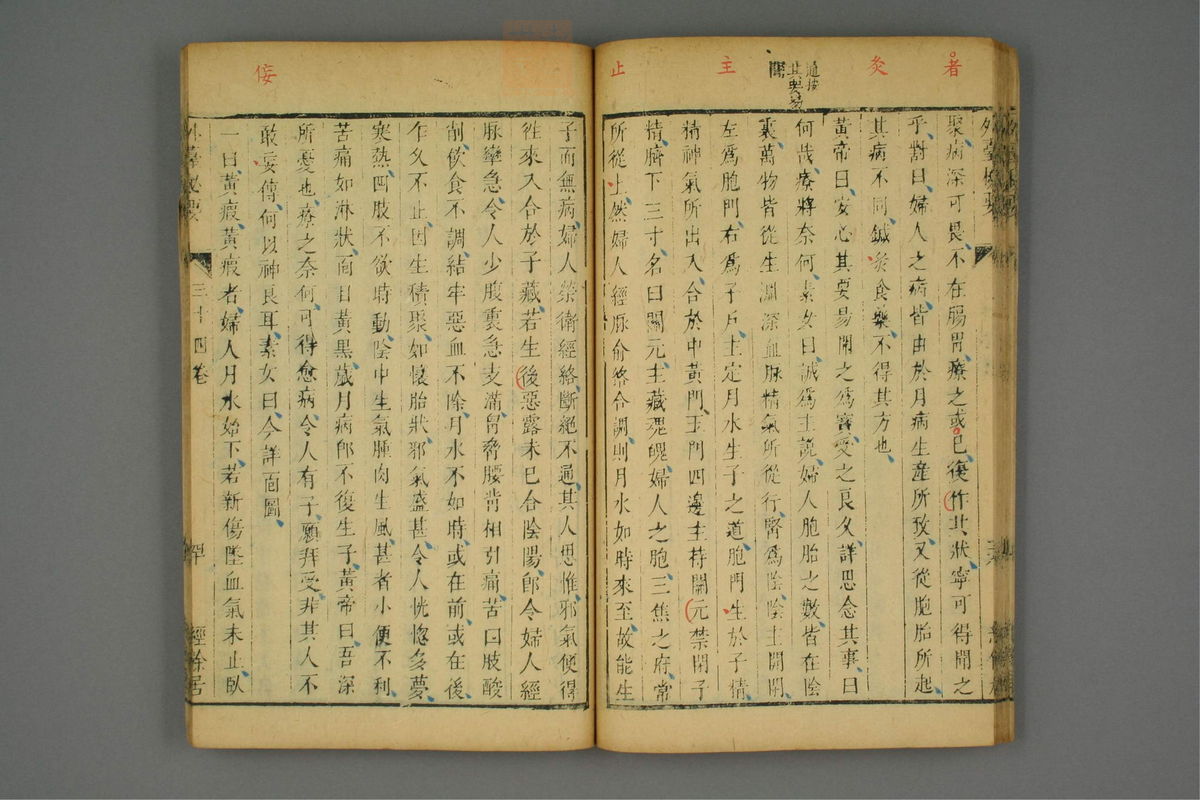 者
灸
主
止
聚病深可畏不在腸胃療之或已復作其狀寧可得聞之
乎對曰婦人之病皆由於月病生產所致又從胞胎所起
其病不同鍼灸食藥不得其方也
黃帝曰安心其要易開之爲寶受之良久詳思念其事曰
何哉療將奈何素女曰誠爲主說婦人胞胎之數皆在陰
裏萬物皆從生淵深血脉精氣所從行腎爲陰陰主開閉
左爲胞門右爲子戶主定月水生子之道胞門生於子精
精神氣所出入合於中黃門玉門四邊主持關元禁閉子
精臍下三寸名曰關元主藏魂魄婦人之胞三焦之府常
所從止然婦人經脉俞絡合調則月水如時來至故能生
侫
子而無病婦人榮衛經絡斷絕不通其人思惟邪氣便得
往來入合於子藏若生後惡露未已合陰陽卽令婦人經
脉攣急令人少腹裏急支滿胷脅腰背相引痛苦四肢酸
削飲食不調結牢惡血不除月水不如時或在前或在後
乍久不止因生積聚如懷胎狀邪氣盛甚令人恍惚多夢
寒熱四肢不欲時動陰中生氣腫肉生風甚者小便不利
苦痛如淋狀面目黃黑歲月病卽不復生子黃帝曰吾深
所憂也療之奈何可得愈病令人有子願拜受非其人不
敢妄傳何以神良耳素女曰今詳面圖
一曰黃瘕黃瘕者婦人月水始下若新傷墜血氣未止臥
外臺秘要
三十四卷
經餘居